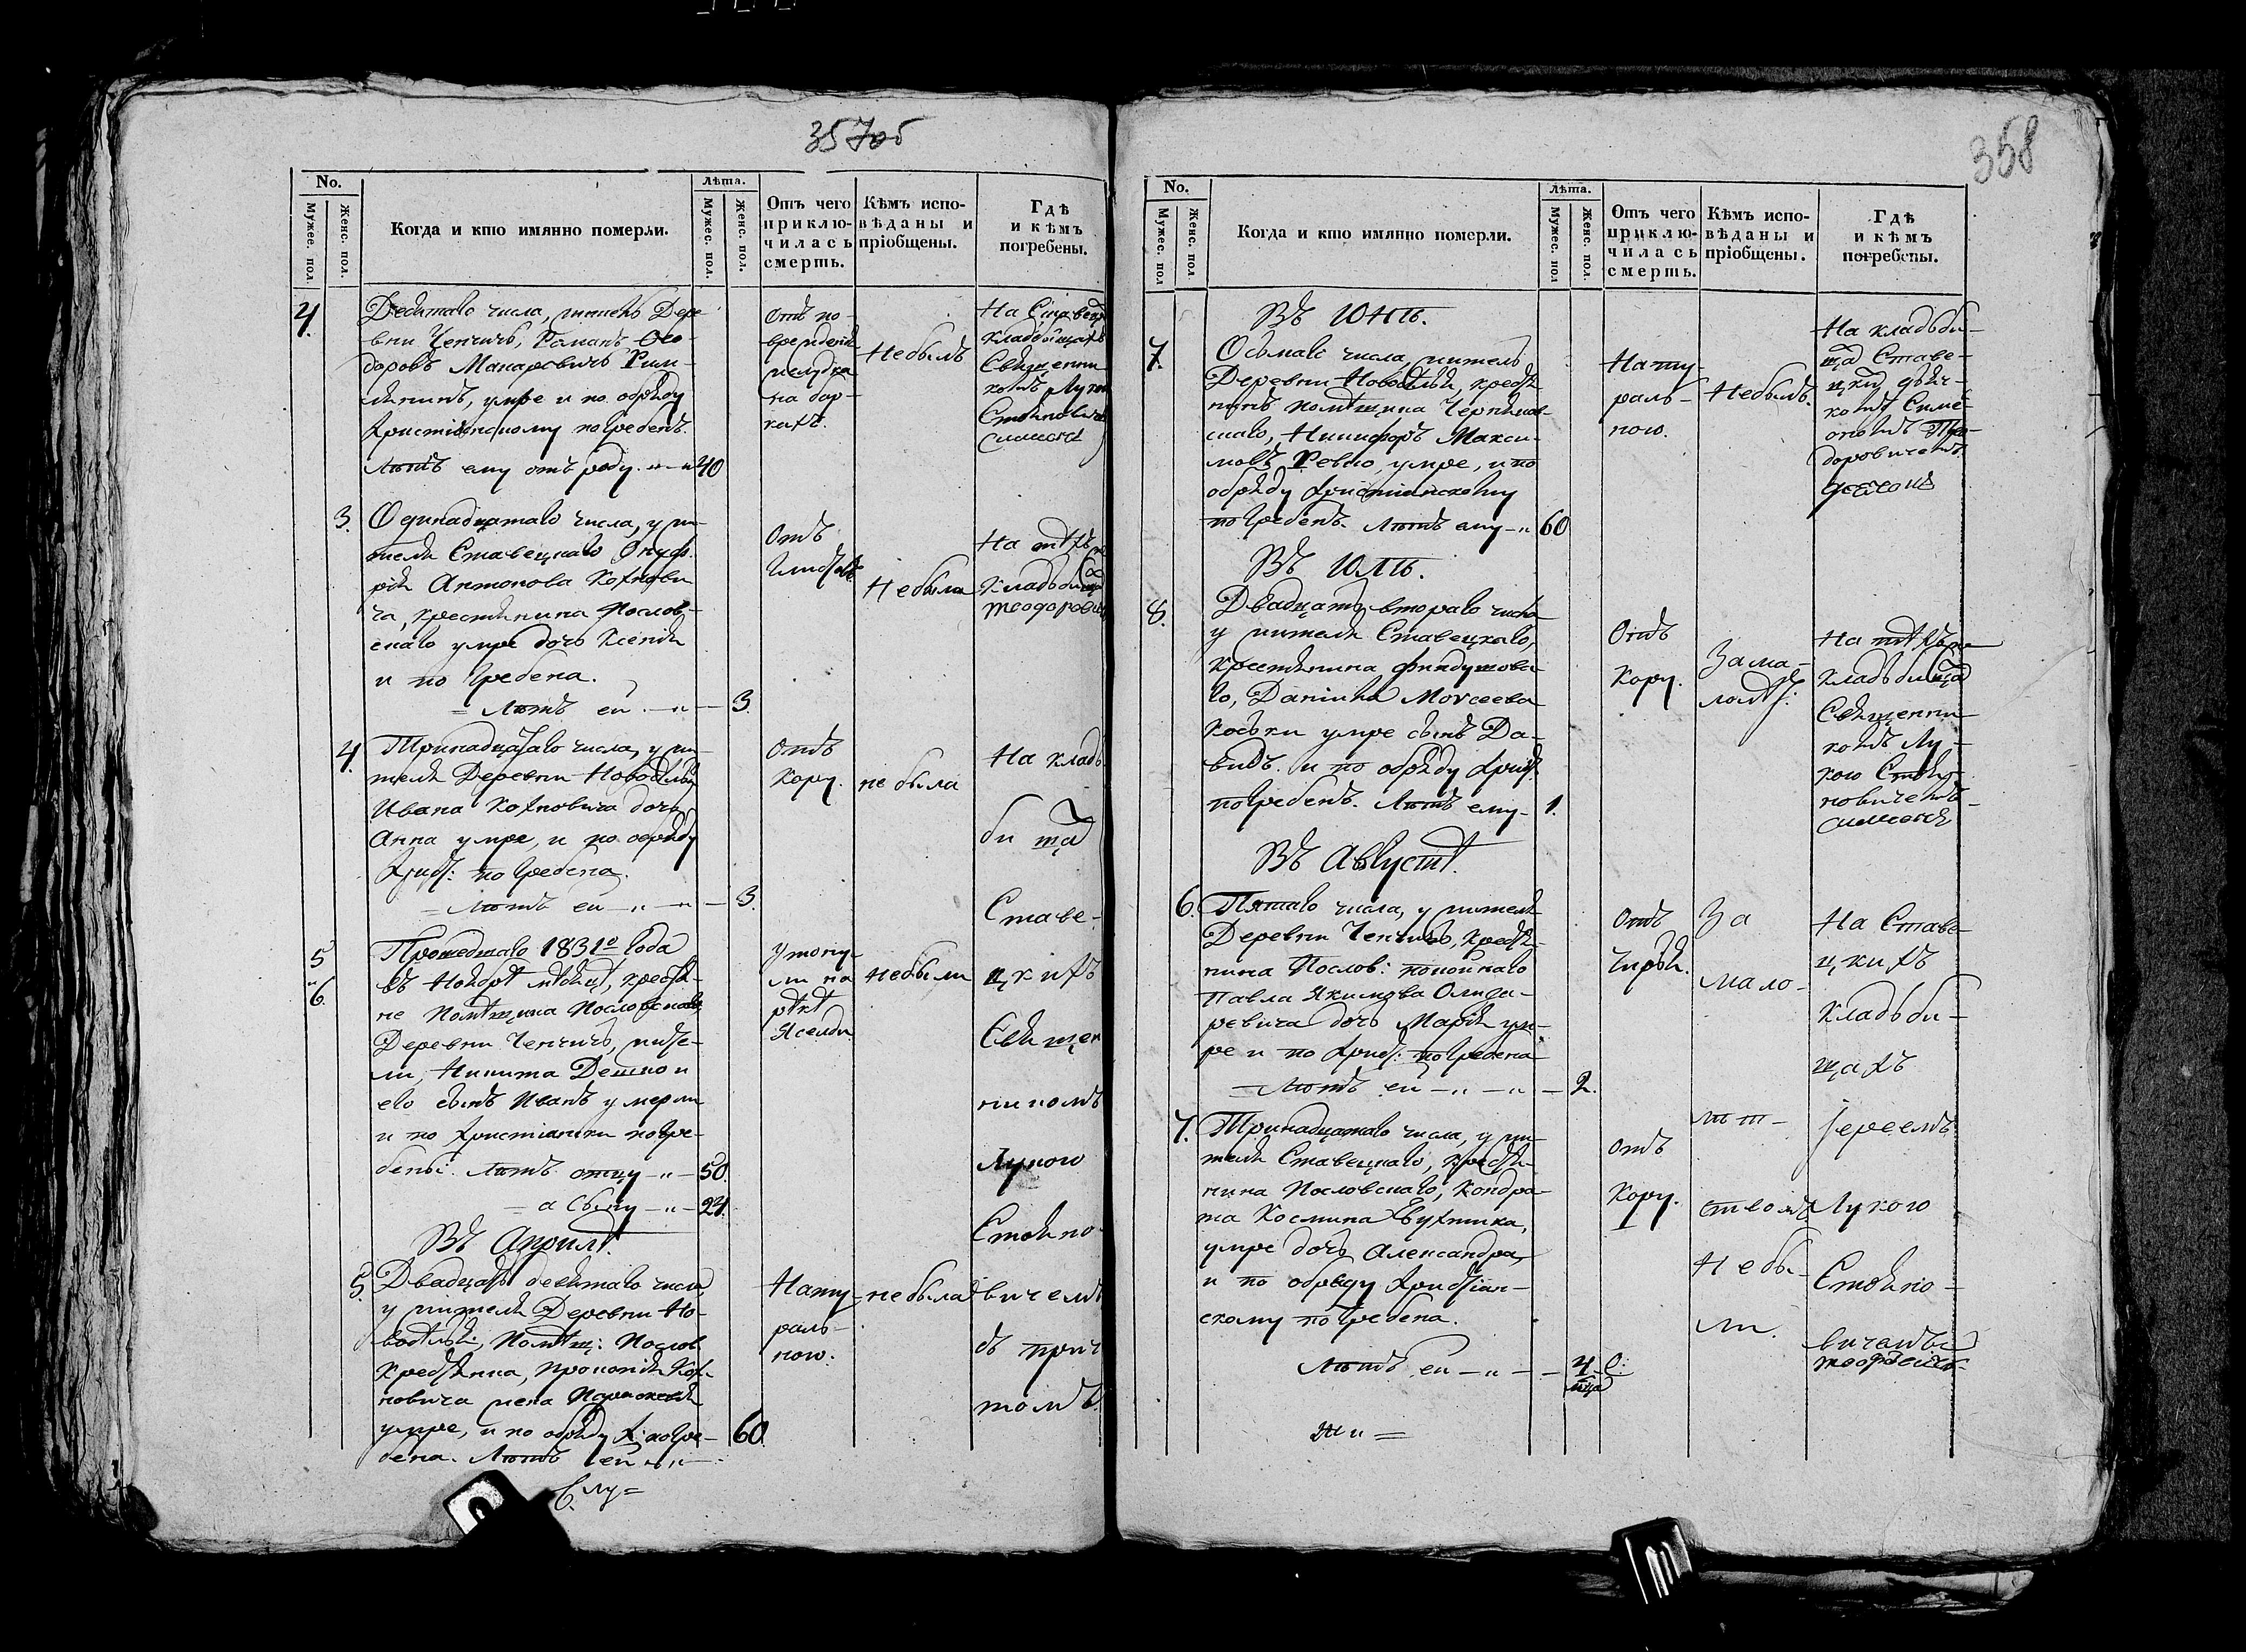 357об
No.
Мужес. пол.
Женс. пол.
Когда и кто имянно померли.
Лѣта.
Мужес. пол.
Женс. пол.
Отъ чего
приклю-
чилась
смерть.
Кѣмъ испо-
вѣданы и
пріобщены.
Гдѣ
и кѣмъ
погребены.
4.
Десятаго числа, житель Дере
вни Ченчичъ, Романъ Ѳео-
доровъ Макаревичъ Рим-
лянинъ, умре и по обряду
Христіянскому погребенъ.
Лѣтъ ему отъ роду 40
Отъ по-
врежденія
желудка
на бар-
кахъ.
Небылъ
На Ставец
кладбищахъ
Священни-
комъ Лукою
Стояновичемъ
3.
Одинадцатаго числа, у жи-
теля Ставецкаго Онуф-
рія Антонова Кохнови
ча, крестянина Послов-
скаго умре дочь Ксенія
и погребена.
Лѣтъ ей 3.
Отъ
Небыла
На тѣхъ же
кладбищахъ
4.
Тринадцатаго числа, у жи-
теля Деревни Новосѣлья
Ивана Кохновича дочь
Анна умре, и по обряду
Хрис: погребена.
Лѣтъ ей 3.
Отъ
Кору.
не была
На кладъ
бищахъ
Ставе-
цкихъ
Священ
никомъ
Лукою
Стояно-
вичемъ
съ прич
томъ.
5
6.
Прошедшаго 1831го года
въ Ноябрѣ мѣсяцѣ, крестя-
не Помѣщика Пословскаго
Деревни Ченчичъ, жите-
ли, Никита Дешко и
его сынъ Иванъ умерли
и по христіански погре-
бены. Лѣтъ отцу 50.
а сыну 24.
Утону-
ли на
рѣкѣ
Яселди
небыли
Въ Априлѣ.
5.
Двадцать девятаго числа
у жителя Деревни Но-
восѣлья, Помѣщ: Послов
Крестянина, Прокопія Кох-
новича жена
умре, и по обряду Х: погре-
бена. Лѣтъ ей 60.
Нату-
раль-
ною.
небыла
Въ Лу=
358
No.
Мужес. пол
Женс. пол
Когда и кто имянно померли.
Лѣта.
Мужес. пол
Женс. пол.
Отъ чего
приклю-
чилась
смерть.
Кѣмъ испо-
вѣданы и
пріобщены.
Гдѣ
и кѣмъ
погребены.
Въ Юнѣ.
7.
Осьмаго числа, житель
Деревни Новосѣлья, крестя
нинъ помѣщика
скаго, Никифоръ Макси-
мовъ Ревко, умре, и по
обряду Христіянскому
погребенъ. Лѣтъ ему 60
Нату-
раль-
ною.
Небылъ.
На кладъби-
щахъ Ставе-
цкихъ
Симе-
ономъ Тео-
доровичемъ
Въ Юлѣ.
8.
Двадцать втораго числа
у жителя Ставецкаго,
крестянина
го, Даніила Моѵсеева
Коськи умре сынъ Да-
видъ. и по обряду Христ
погребенъ. Лѣтъ ему 1.
Отъ
Кору.
За ма-
лолѣт:
На тѣхъ же
кладъбищахъ
Священни-
комъ Лу-
кою Стоя-
новичемъ
Въ Августѣ.
6.
Пятаго числа, у жителя
Деревни Ченчичъ, крестя-
нина Послов: покойнаго
Павла Якимова
ревича дочь Марія ум-
ре и по Христ: погребена
Лѣтъ ей 2.
Отъ
Чиръя.
За
мало-
лѣт-
ствомъ
Небы-
ли.
На Ставе-
цкихъ
кладъби-
щахъ
Іереемъ
Лукою
Стояно-
вичемъ
7.
Тринадцатаго числа, у жи-
теля Ставецкаго, крестя-
нина Пословскаго, Кондра-
та Космина
умре дочь Александра,
и по обряду Христіян-
скому погребена.
Лѣтъ ей 4
мца
Отъ
Кору.